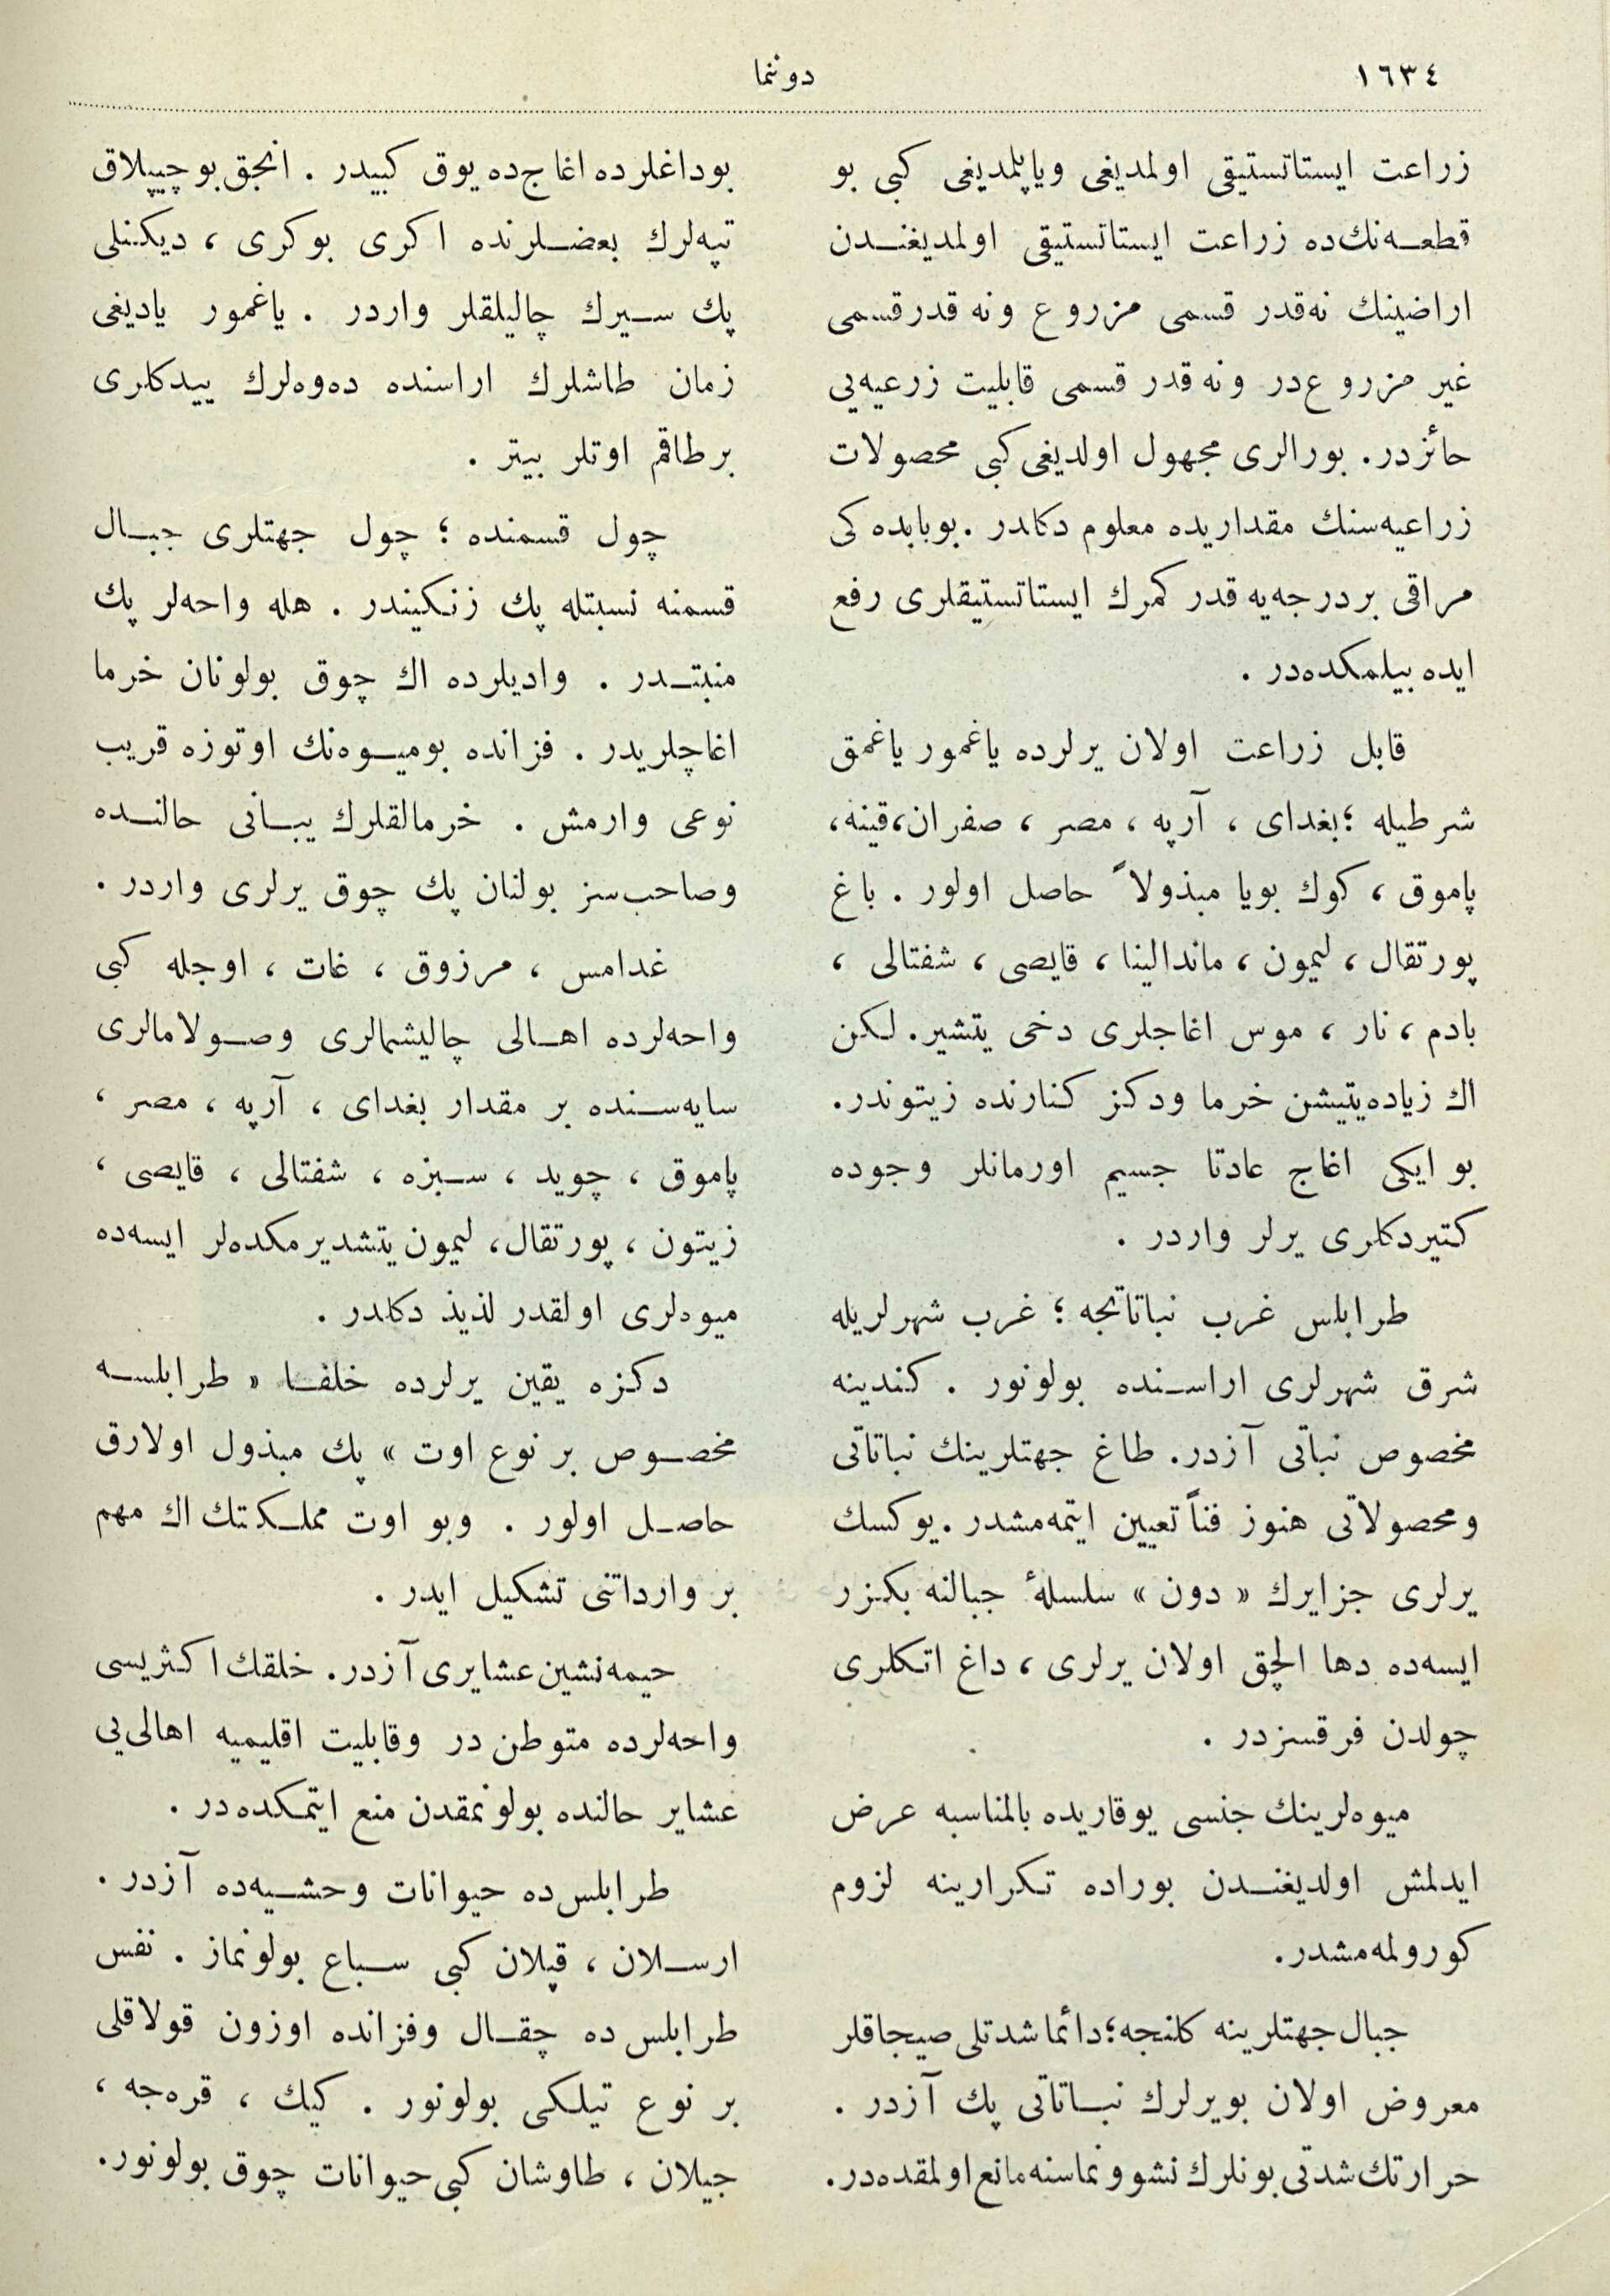 ١٦٣٤
دوننما
زراعت ايستاتستيقى اولمديغى وياپلمديغى كبى بو
قطعه‌نك‌ده زراعت ايستاتستيقى اولمديغندن
اراضينك نه‌قدر قسمى مزروع ونه قدرقسمى
غير مزروع‌در ونه قدر قسمى قابليت زرعيه‌يى
حائزدر. بورالرى مجهول اولديغى كبى محصولات
زراعيه‌سنك مقداريده معلوم دكلدر. بوبابده كى
مراقى بردرجه‌يه قدر كمرك ايستاتستيقلرى رفع
ايده بيلمكده‌در .
قابل زراعت اولان يرلرده ياغمور ياغمق
شرطيله ؛ بغداى ، آرپه ، مصر ، صفران، قينه،
پاموق ، كوك بويا مبذولاً حاصل اولور . باغ
پورتقال ، ليمون ، ماندالينا ، قايصى ، شفتالى ،
بادم ، نار ، موس اغاجلرى دخى يتشير. لكن
اك زياده‌يتيشن خرما ودكز كنارنده زيتوندر.
بو ايكى اغاج عادتا جسيم اورمانلر وجوده
كتيردكلرى يرلر واردر .
طرابلس غرب نباتاتجه ؛ غرب شهرلريله
شرق شهرلرى اراسنده بولونور . كندينه
مخصوص نباتى آزدر. طاغ جهتلرينك نباتاتى
ومحصولاتى هنوز فناً تعيين ايتمه‌مشدر. يوكسك
يرلرى جزايرك « دون » سلسلۀ جبالنه بكزر
ايسه‌ده دها الچق اولان يرلرى ، داغ اتكلرى
چولدن فرقسزدر .
ميوه‌لرينك جنسى يوقاريده بالمناسبه عرض
ايدلمش اولديغندن بوراده تكرارينه لزوم
كورولمه‌مشدر.
جبال جهتلرينه كلنجه؛ دائما شدتلى صيجاقلر
معروض اولان بويرلرك نباتاتى پك آزدر .
حرارتك شدتى بونلرك نشوونماسنه مانع اولمقده‌در.
بوداغلرده اغاج‌ده يوق كبيدر . انجق بوچيپلاق
تپه‌لرك بعضلرنده اكرى بوكرى ، ديكنلى
پك سيرك چاليلقلر واردر . ياغمور ياديغى
زمان طاشلرك اراسنده ده‌وه‌لرك ييدكلرى
برطاقم اوتلر بيتر .
چول قسمنده ؛ چول جهتلرى جبال
قسمنه نسبتله پك زنكيندر . هله واحه‌لر پك
منبتدر . واديلرده اك چوق بولونان خرما
اغاچلريدر . فزانده بوميوه‌نك اوتوزه قريب
نوعى وارمش . خرمالقلرك يبانى حالنده
وصاحب‌سز بولنان پك چوق يرلرى واردر .
غدامس ، مرزوق ، غات ، اوجله كبى
واحه‌لرده اهالى چاليشمالرى وصولامالرى
سايه‌سنده بر مقدار بغداى ، آرپه ، مصر ،
پاموق ، چويد ، سبزه ، شفتالى ، قايصى ،
زيتون ، پورتقال، ليمون يتشديرمكده‌لر ايسه‌ده
ميوه‌لرى اولقدر لذيذ دكلدر .
دكزه يقين يرلرده خلفا « طرابلسه
مخصوص بر نوع اوت » پك مبذول اولارق
حاصل اولور . وبو اوت مملكتك اك مهم
بر وارداتنى تشكيل ايدر .
حيمه‌نشين عشايرى آزدر. خلقك اكثريسى
واحه‌لرده متوطن در وقابليت اقليميه اهالى‌يى
عشاير حالنده بولونمقدن منع ايتمكده‌در .
طرابلس‌ده حيوانات وحشيه‌ده آزدر .
ارسلان ، قپلان كبى سباع بولونماز . نفس
طرابلس ده چقال وفزانده اوزون قولاقلى
بر نوع تيلكى بولونور . كيك ، قره‌جه ،
جيلان ، طاوشان كبى حيوانات چوق بولونور.